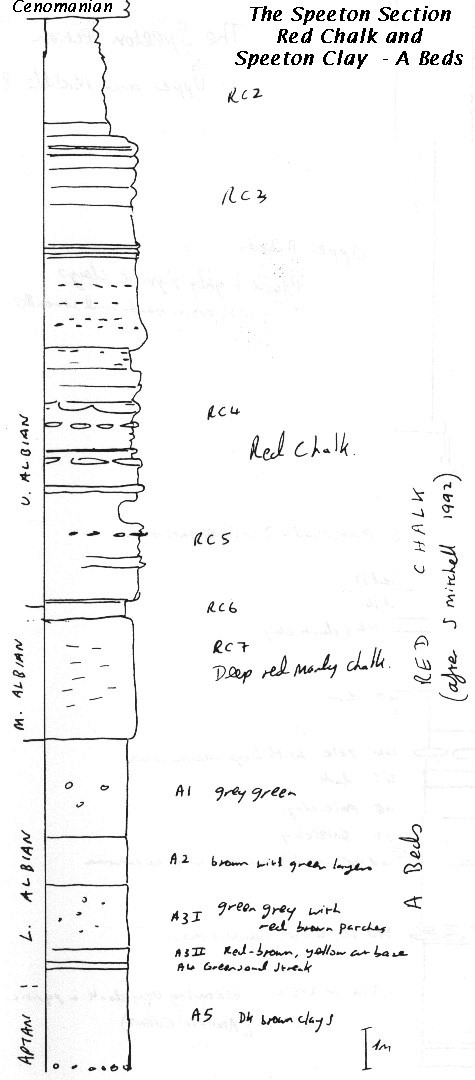 Cenomanian
The Speeton Section
Red Chalk and
Speeton Clay - A Beds
RC2
RC3
RC4
Red Chalk.
U. ALBIAN
RED CHALK
(after S Mitchell 1992)
RC5
RC6
RC7
Deep red marly chalk.
M. ALBIAN
A1 grey green
A2 brown with green layers
A Beds
L. ALBIAN
A3I green grey with
red brown patches
A3II Red-brown, yellow at base
A4 Greensand streak
A5 Dk brown clays
APTIAN
1m